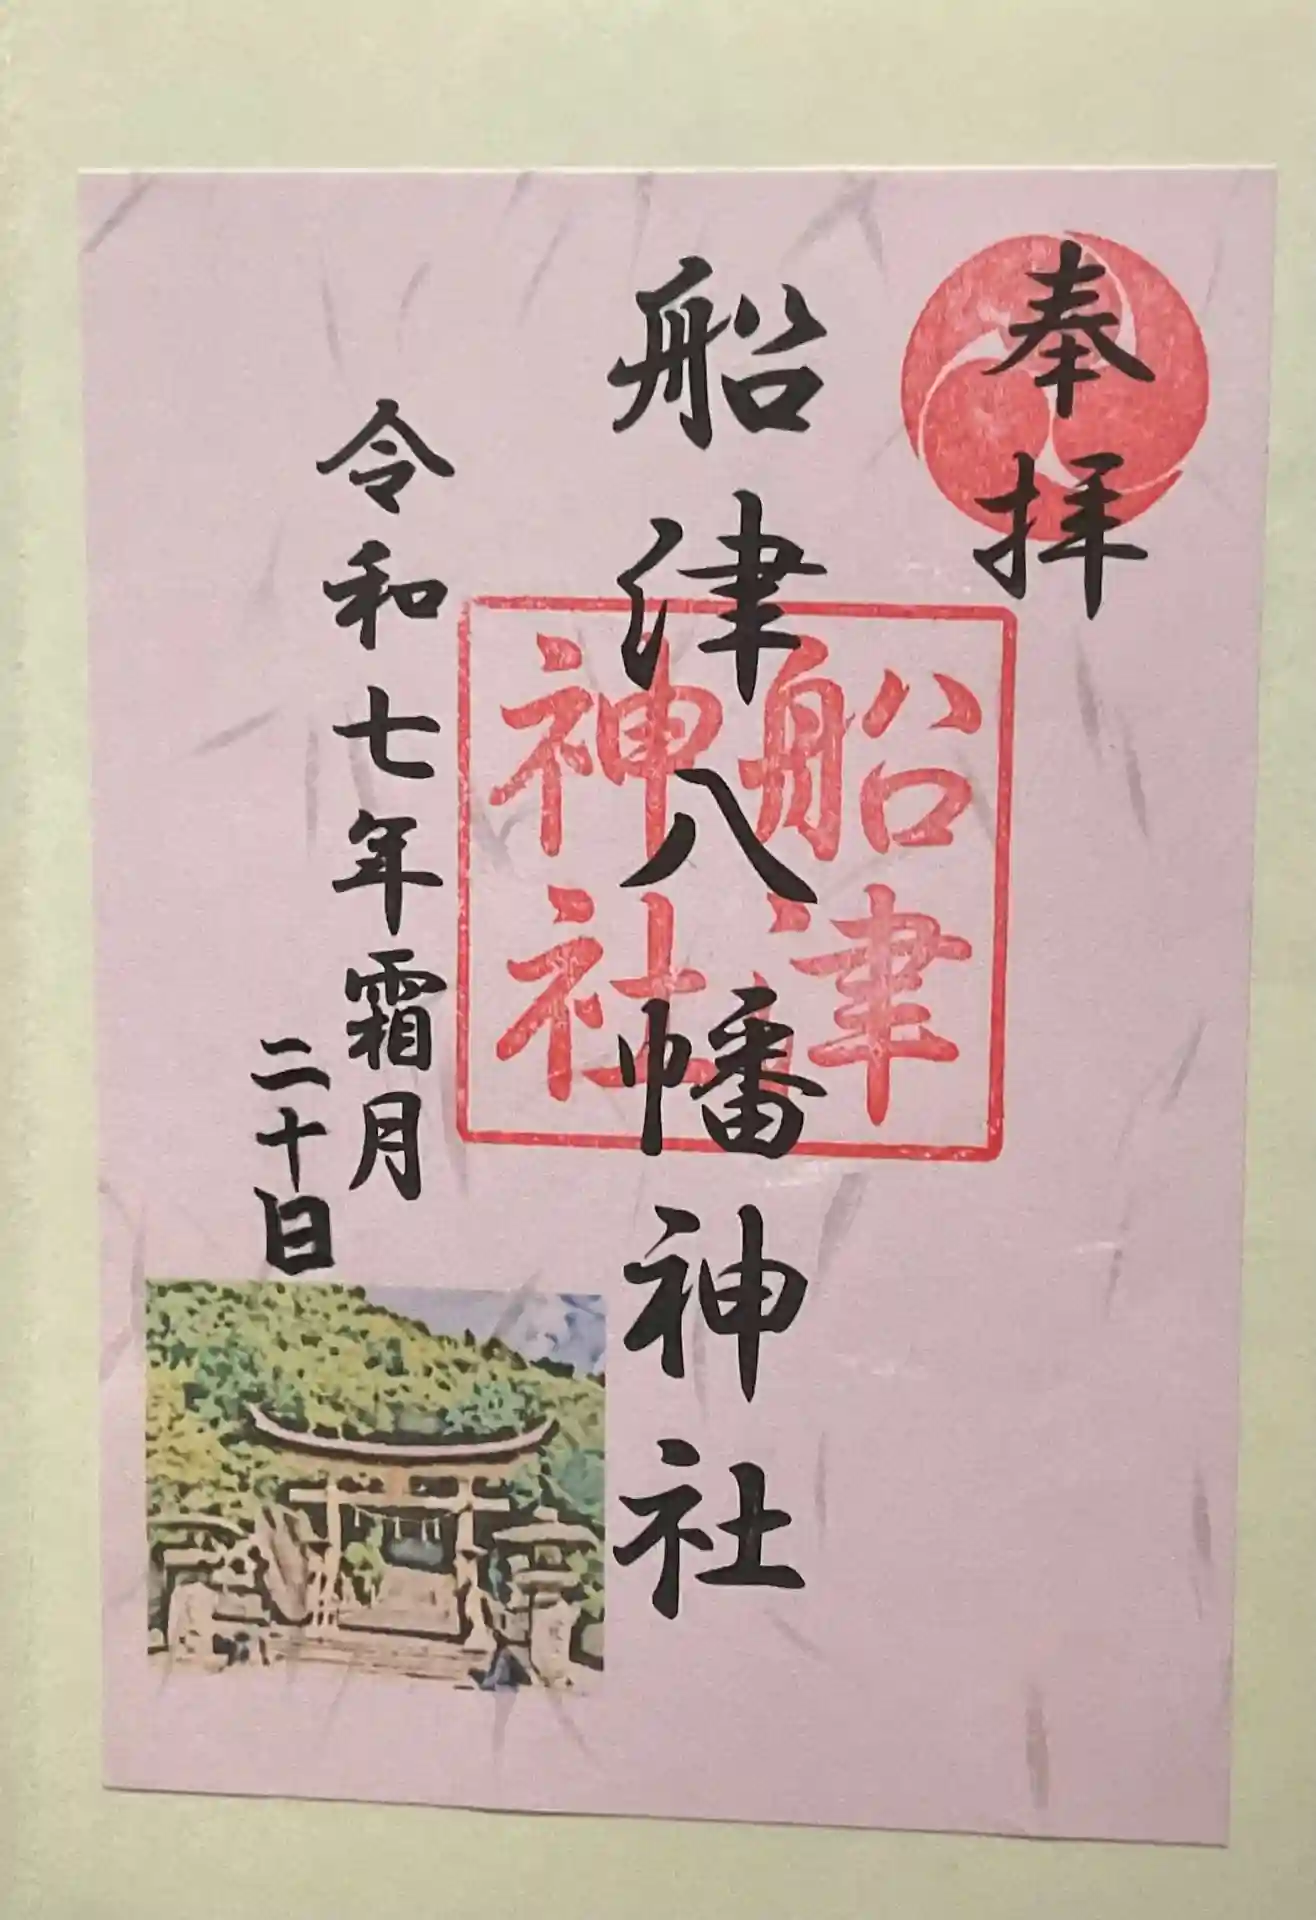 奉拝
船津八幡神社
船津
神社
令和七年霜月
二十日